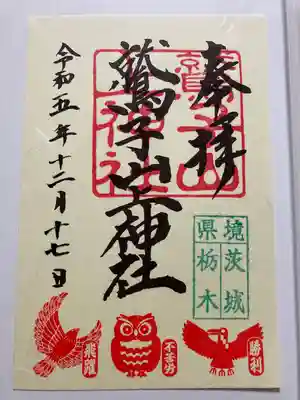 奉拝
鷲子山上神社
令和五年十二月十七日
境 茨城
県 栃木
飛躍
不苦労
勝利